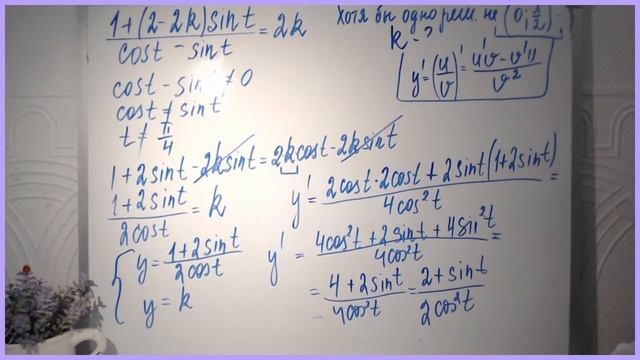 1+(2-2k)sint / cost-sint = 2k
Хотя бы одно реш. на (0; π/2);
k-?
y'=(u/v)'=u'v-v'u / v²
cost-sint≠0
cost≠sint
t≠π/4
1+2sint-2ksint=2kcost-2ksint
1+2sint / 2cost = k
y'=2cost·2cost+2sint(1+2sint) / 4cos²t =
{ y=1+2sint / 2cost
y=k
y'=4cos²t+2sint+4sin²t / 4cos²t =
=4+2sint / 4cos²t = 2+sint / 2cos²t